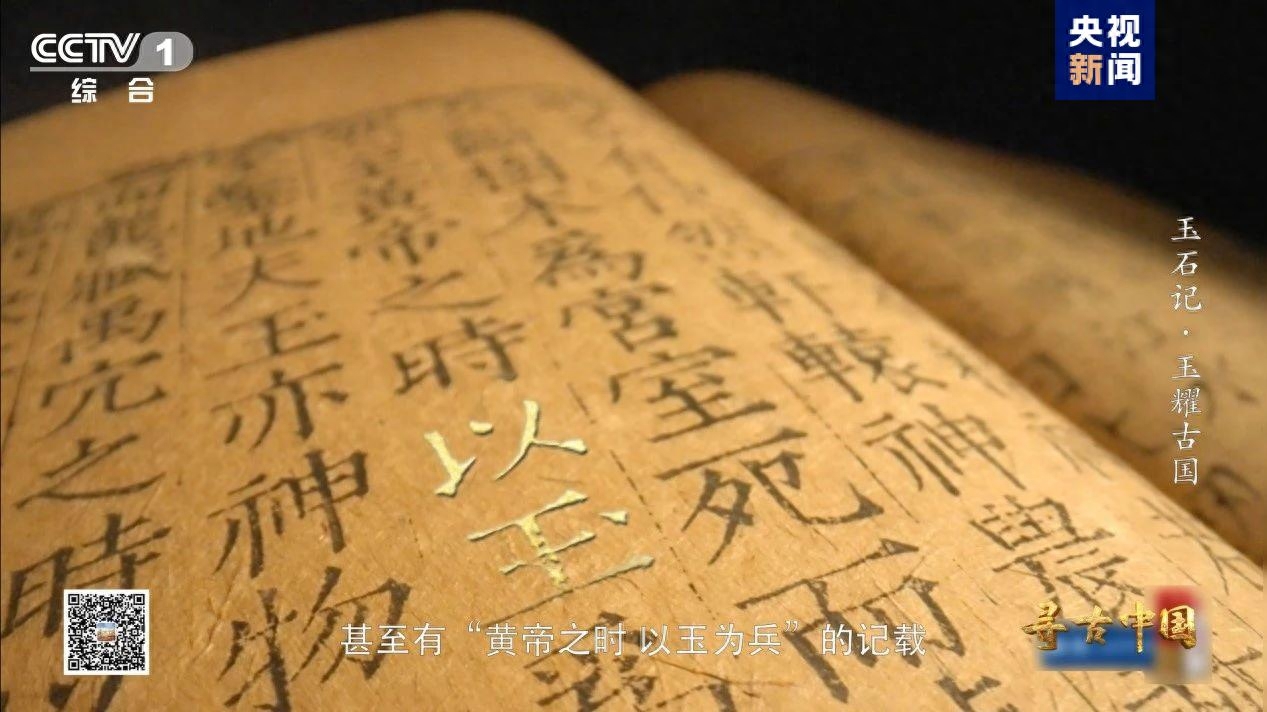 CCTV 1
综合
央视
新闻
玉石记·玉耀古国
軒轅神農
木為宮室死而
黃帝之時以玉
地夫玉亦神物
而龍臧禹穴之時
甚至有“黄帝之时 以玉为兵”的记载
寻古中国